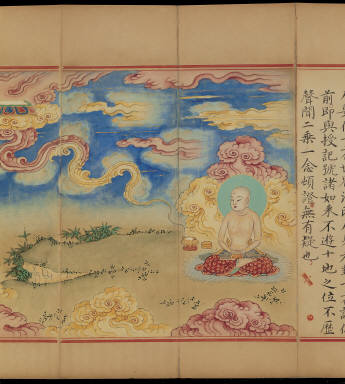 前即與授記號諸如來不遊十地之位不歷
聲聞二乘一念頓證無有疑也